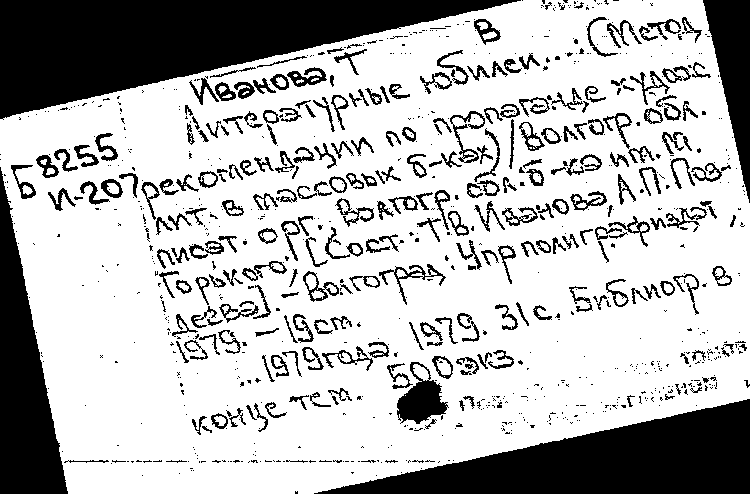 Иванова, Т В
Литературные юбилеи...: (Метод
Б 8255
И-207
рекомендации по пропаганде худож.
лит. в массовых б-ках) / Волгогр. обл.
писат. орг., Волгогр. обл. б-ка им. М.
Горького; [Сост.: Т.В. Иванова, А.П. Поз-
деева]. - Волгоград: Упрполиграфиздат,
1979. - 19 см.
...1979 года. 1979. 31 с. Библиогр. в
конце тем. 500 экз.
томов
главном